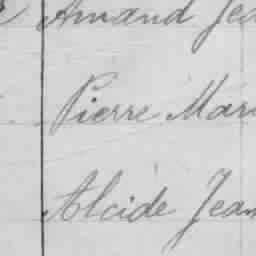 Amand Jea
Pierre Mari
Alcide Jean